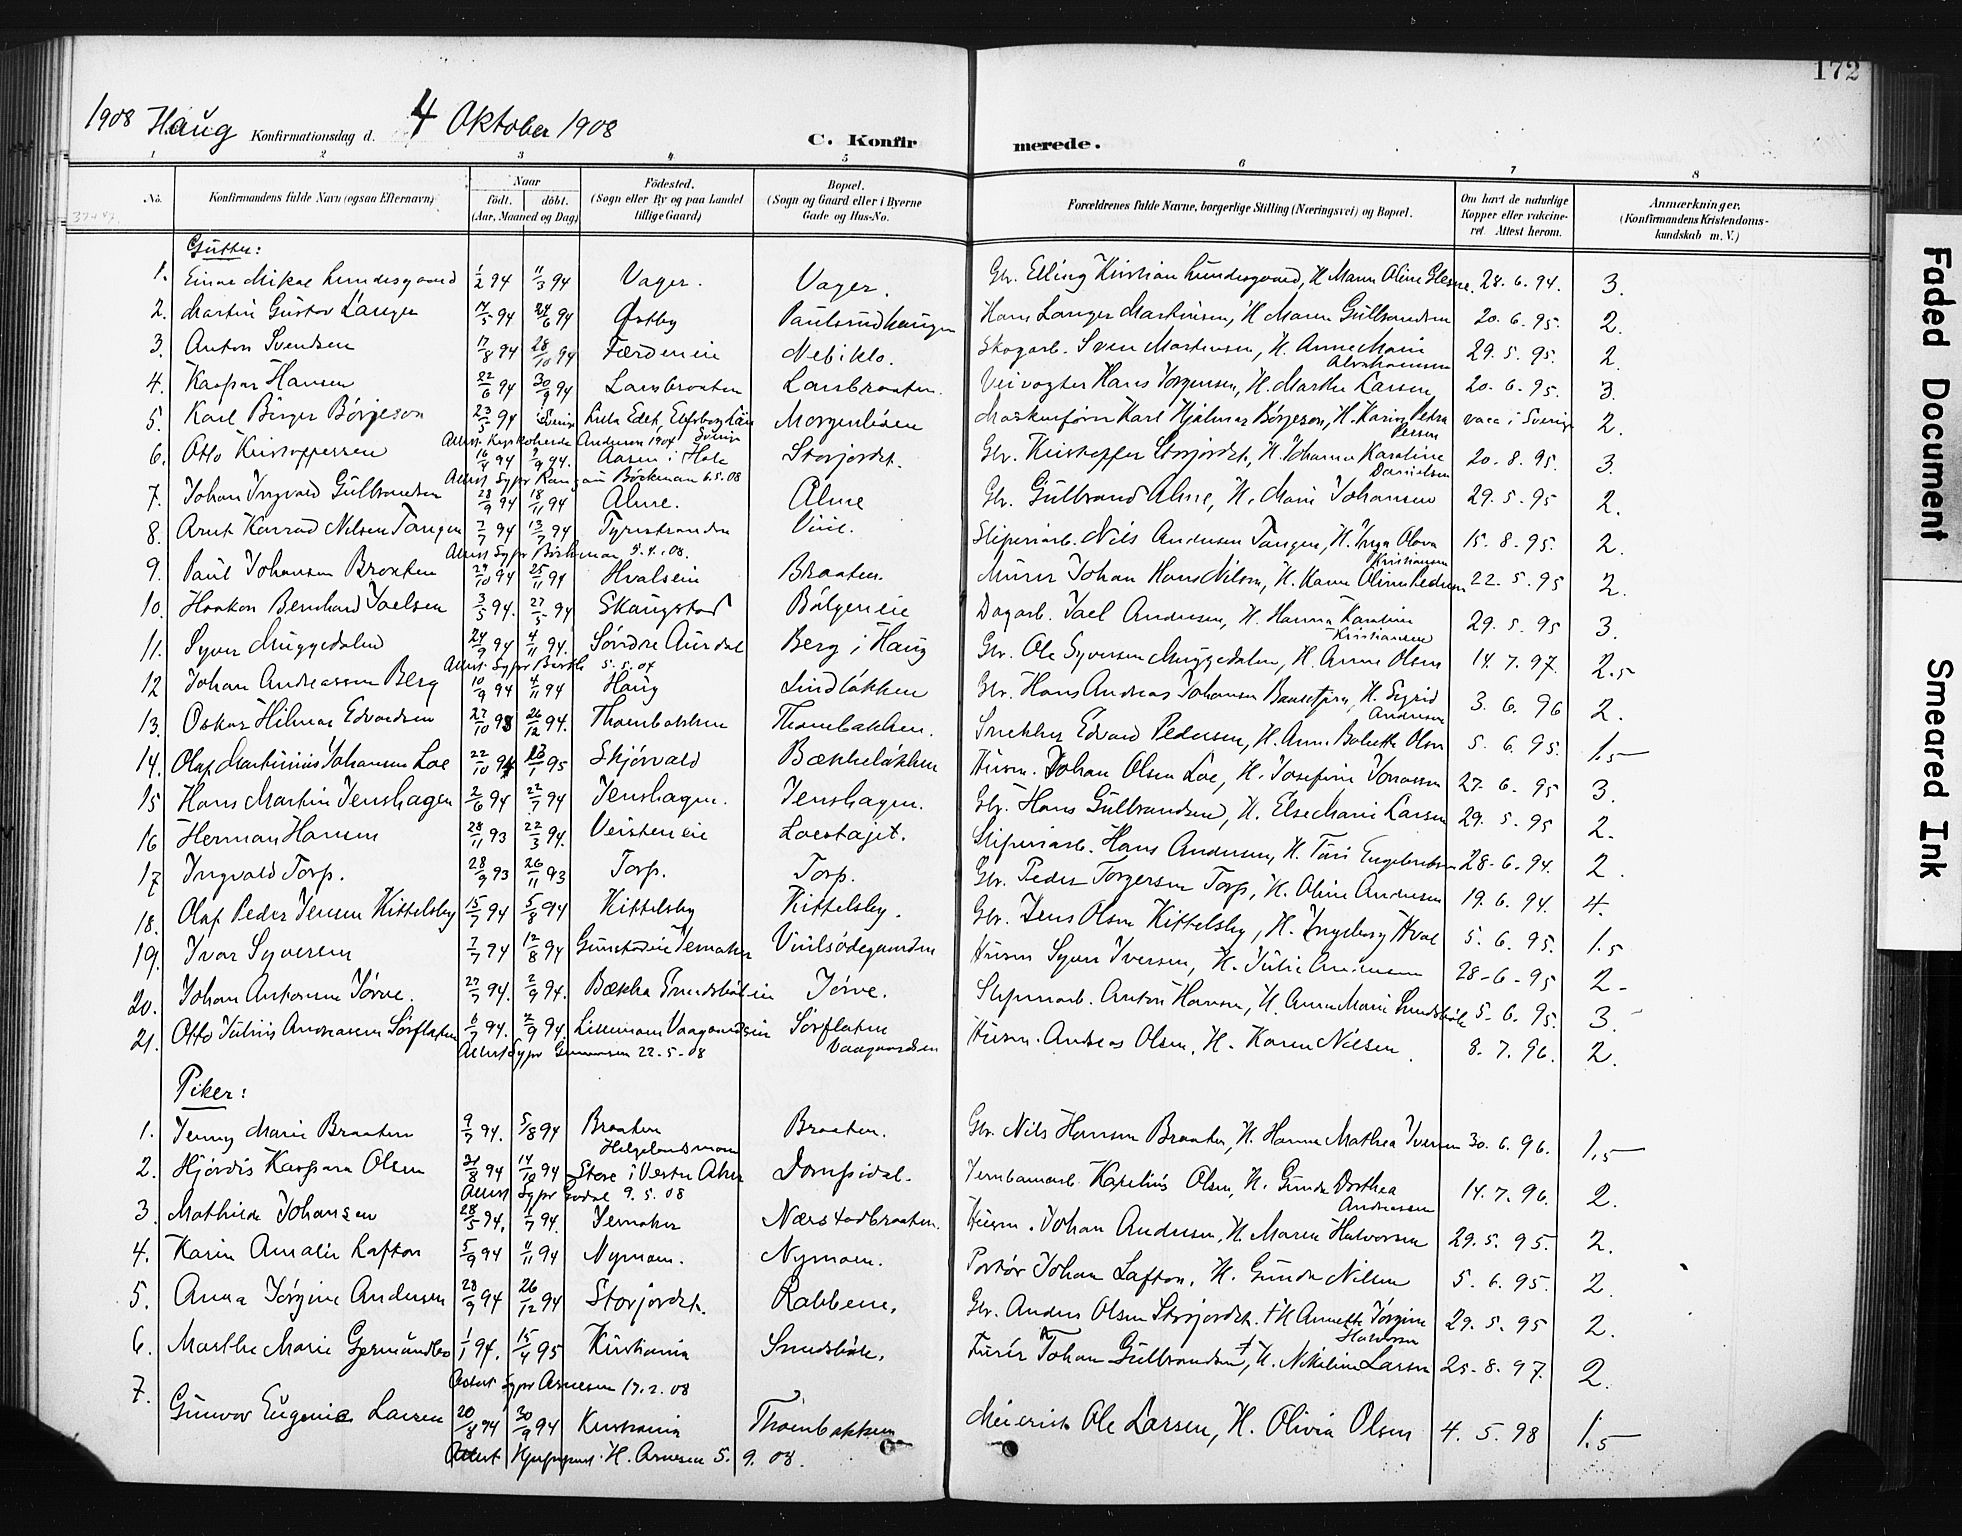 172
1908 Haug Konfirmationsdag d. 4 Oktober 1908
C. Konfirmerede.
1 2 3 4 5 6 7 8
No. Konfirmandens fulde Navn (ogsaa Efternavn) Naar födt. döbt. (Aar, Maaned og Dag) Födested. (Sogn eller By og paa Landet tillige Gaard) Bopæl. (Sogn og Gaard eller i Byerne Gade og Hus-No. Forældrenes fulde Navne, borgerlige Stilling (Næringsvei) og Bopæl. Om havt de naturlige Kopper eller vakcineret. Attest herom. Anmærkninger, (Konfirmandens Kristendomskundskab m. V.)
Gutter:
1. Einar Mikal Lundesgaard 1/2 94 11/3 94 Vager. Vager. Gbr. Elling Kristian Lundesgaard, H. Maren Oline 28.6.94. 3.
2. Martin Gustav Langer 17/5 94 24/6 94 Østby Paulsrudhaugen Hans Langer Martinsen, H. Maren Gulbrandsen 20.6.95. 2.
3. Anton Svendsen 17/8 94 28/10 94 Færdeneie Nebiklo. Skogarb. Sven Mortensen, H. Anne Marie Abrahamsen 29.5.95. 2.
4. Kaspar Hansen 22/6 94 30/9 94 Larsbraaten Larsbraaten. Veivogter Hans Jørgensen, H. Marthe Larsen 20.6.95. 3.
5. Karl Birger Börjeson 23/5 94 i Sverige Lilla Edet, Elfsborg Län Sverige Morgenlösen Karl Hjalmar Börjeson, H. Karin Petra Person vacc i Sverige 2.
Attest Kyrkoherde Anderson 1904
6. Otto Kristoffersen 16/4 94 9/9 94. Aasen i Hole Storjordet. Gbr. Kristoffer Storjordet, H. Johanne Karoline Danielsen 20.8.95. 3.
Attest Sgpr Böckman 6.5.08
7. Johan Ingvald Gulbrandsen 28/9 94 18/11 94 Alme. Alme Gbr. Gulbrand Alme, H. Marie Johansen 29.5.95 2.
8. Arnt Konrad Nilsen Tangen 7/7 94 13/7 94 Tyristranden Viul. Sliperiarb. Nils Andersen Tangen, H. Inga Olava Kristiansen 15.8.95. 2.
Attest Sgpr Böckman 5.4.08.
9. Paul Johansen Braaten 29/10 94 25/11 94 Hvalseie Braaten. Murer Johan Hans Nilsen, H. Karen Oline Pedersen 22.5.95 2.
10. Haakon Bernhard Joelsen 3/5 94. 27/5 94 Skaugstad Bölgeneie Dagarb. Joel Andersen, H. Hanna Karoline Kristiansen 29.5.95 3.
11. Syver Muggedalen 24/9 94 4/11 94. Søndre Aurdal Berg i Haug Gbr. Ole Syversen Muggedalen, H. Anne Olsen 14.7.97. 2.5
Attest Sgpr 5.5.04
12 Johan Andreassen Berg 10/9 94 4/11 94 Haug Lindløkken Gbr. Hans Andreas Johansen, H. Sigrid Andersen 3.6.96 2.
13. Oskar Hilmar Edvardsen 27/10 93 26/12 94. Thoenbakken Thoenbakken. Snekker Edvard Pedersen, H. Anne Bolette Olsen 5.6.95. 1.5
14. Olaf Martinius Johansen Loe 22/10 94 13/1 95 Skjörvald Bækkeløkken Husm. Johan Olsen Loe, H. Josefine Jonassen 27.6.95 3.
15 Hans Martin Jenshagen 2/6 94 22/7 94 Jenshagen. Jenshagen. Gbr. Hans Gulbrandsen, H. Else Marie Larsen 29.5.95 2.
16 Herman Hansen 28/11 93 22/3 94. Veisteneie Loestajet. Sliperiarb. Hans Andersen, H. Turi Engebretsen 28.6.94. 2.
17 Ingvald Torp. 28/9 93 26/11 93 Torp. Torp. Gbr. Peder Torgersen Torp, H. Oline Andersen 19.6.94. 4.
18. Olaf Peder Jensen Kittelsby 15/7 94 5/8 94 Kittelsby Kittelsby. Gbr. Jens Olsen Kittelsby, H. Ingeborg Hval 5.6.95. 1.5
19. Ivar Syversen 7/7 94 12/8 94 Gunstadeie Jernaker Viulsödegaarden Husm Syver Iversen, H. Julie 28-6-95 2-
20. Johan Antonsen Jörve. 27/7 94. 2/9 94. Bækka Smedsböleie Jörve. Slipmarb. Anton Hansen, H. Anne Marie Smedsböle 5.6.95. 3.
21. Otto Julius Andreassen Sörflaten 6/7 94. 2/9 94. Lillemoen Vaagaardseie Sörflaten Vaagaardseie Husm. Andreas Olsen, H. Karen Nilsen. 8.7.96. 2.
Attest Sgpr Gunnersen 22.5.08
Piker:
1. Jenny Marie Braaten 9/7 94. 5/8 94 Braaten Helgelandsmoen Braaten. Gbr. Nils Hansen Braaten, H. Hanna Mathea Iversen 30.6.96. 1.5
2. Hjördis Kaspara Olsen 21/8 94 14/10 94 Store i Vestre Aker Dompidal. Jernbanearb. Karelius Olsen, H. Gunda Dorthea Andreassen 14.7.96. 2.
Attest Sgpr Godal 9.5.08
3. Mathilde Johansen 28/5 94. 1/7 94. Jernaker Nærstadbraaten. Husm. Johan Andersen, H. Maren Halvorsen 29.5.95. 2.
4. Karin Amalie Lafton 5/9 94 11/11 94 Nymoen. Nymoen. Portør Johan Lafton, H. Gunda Nilsen 5.6.95. 2.
5. Anna Jörgine Andersen 28/9 94 26/12 94 Storjordet. Rabbene. Gbr. Anders Olsen Storjordet. H Annette Jörgine Halvorsen 29.5.95 2.
6. Marthe Marie Germundbo 1/1 94. 15/4 95 Kristiania Smedsböle. Furér Johan Gulbrandsen †, H. Nikoline Larsen 25.8.97. 2.
Attest Sgpr Arnesen 17.2.08
7. Gunvor Eugenie Larsen 20/8 94 30/9 94 Kristiania Thoenbakken Meierist Ole Larsen, H. Olivia Olsen 4.5.98 1.5
Attest H. Arnesen 5.9.08.
Faded Document
Smeared Ink